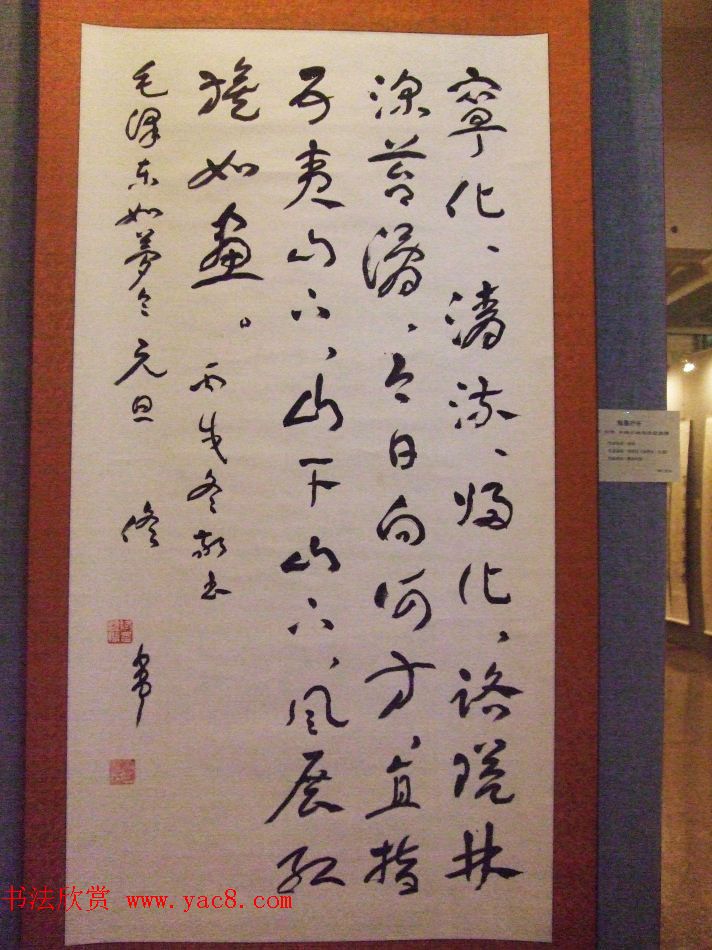 寧化、清流、归化，路隘林
深苔滑，今日向何方，直指
武夷山下，山下山下，风展红
旗如画。丙戌冬敬书
毛泽东如梦令元旦
佟韦
书法欣赏 www.yac8.com